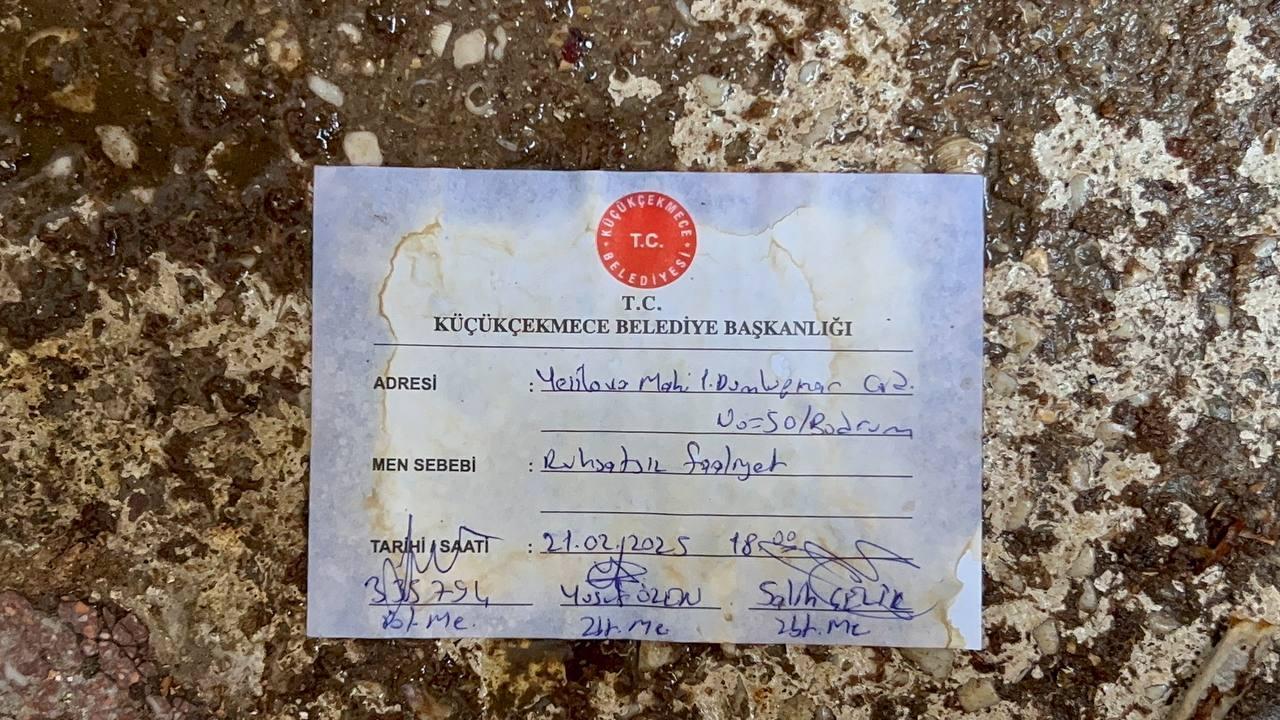 KÜÇÜKÇEKMECE
T.C.
BELEDİYESİ
T.C.
KÜÇÜKÇEKMECE BELEDİYE BAŞKANLIĞI
ADRESİ : Yeşilova Mah 1.Dumlupınar Cad.
No=50/Bodrum
MEN SEBEBİ : Ruhsatsız faaliyet
TARİHİ / SAATİ : 21.02.2025 18 00
335794 Yusuf ÖZEN Salih ÇELİK
Zbt. Me. Zbt. Me Zbt. Me